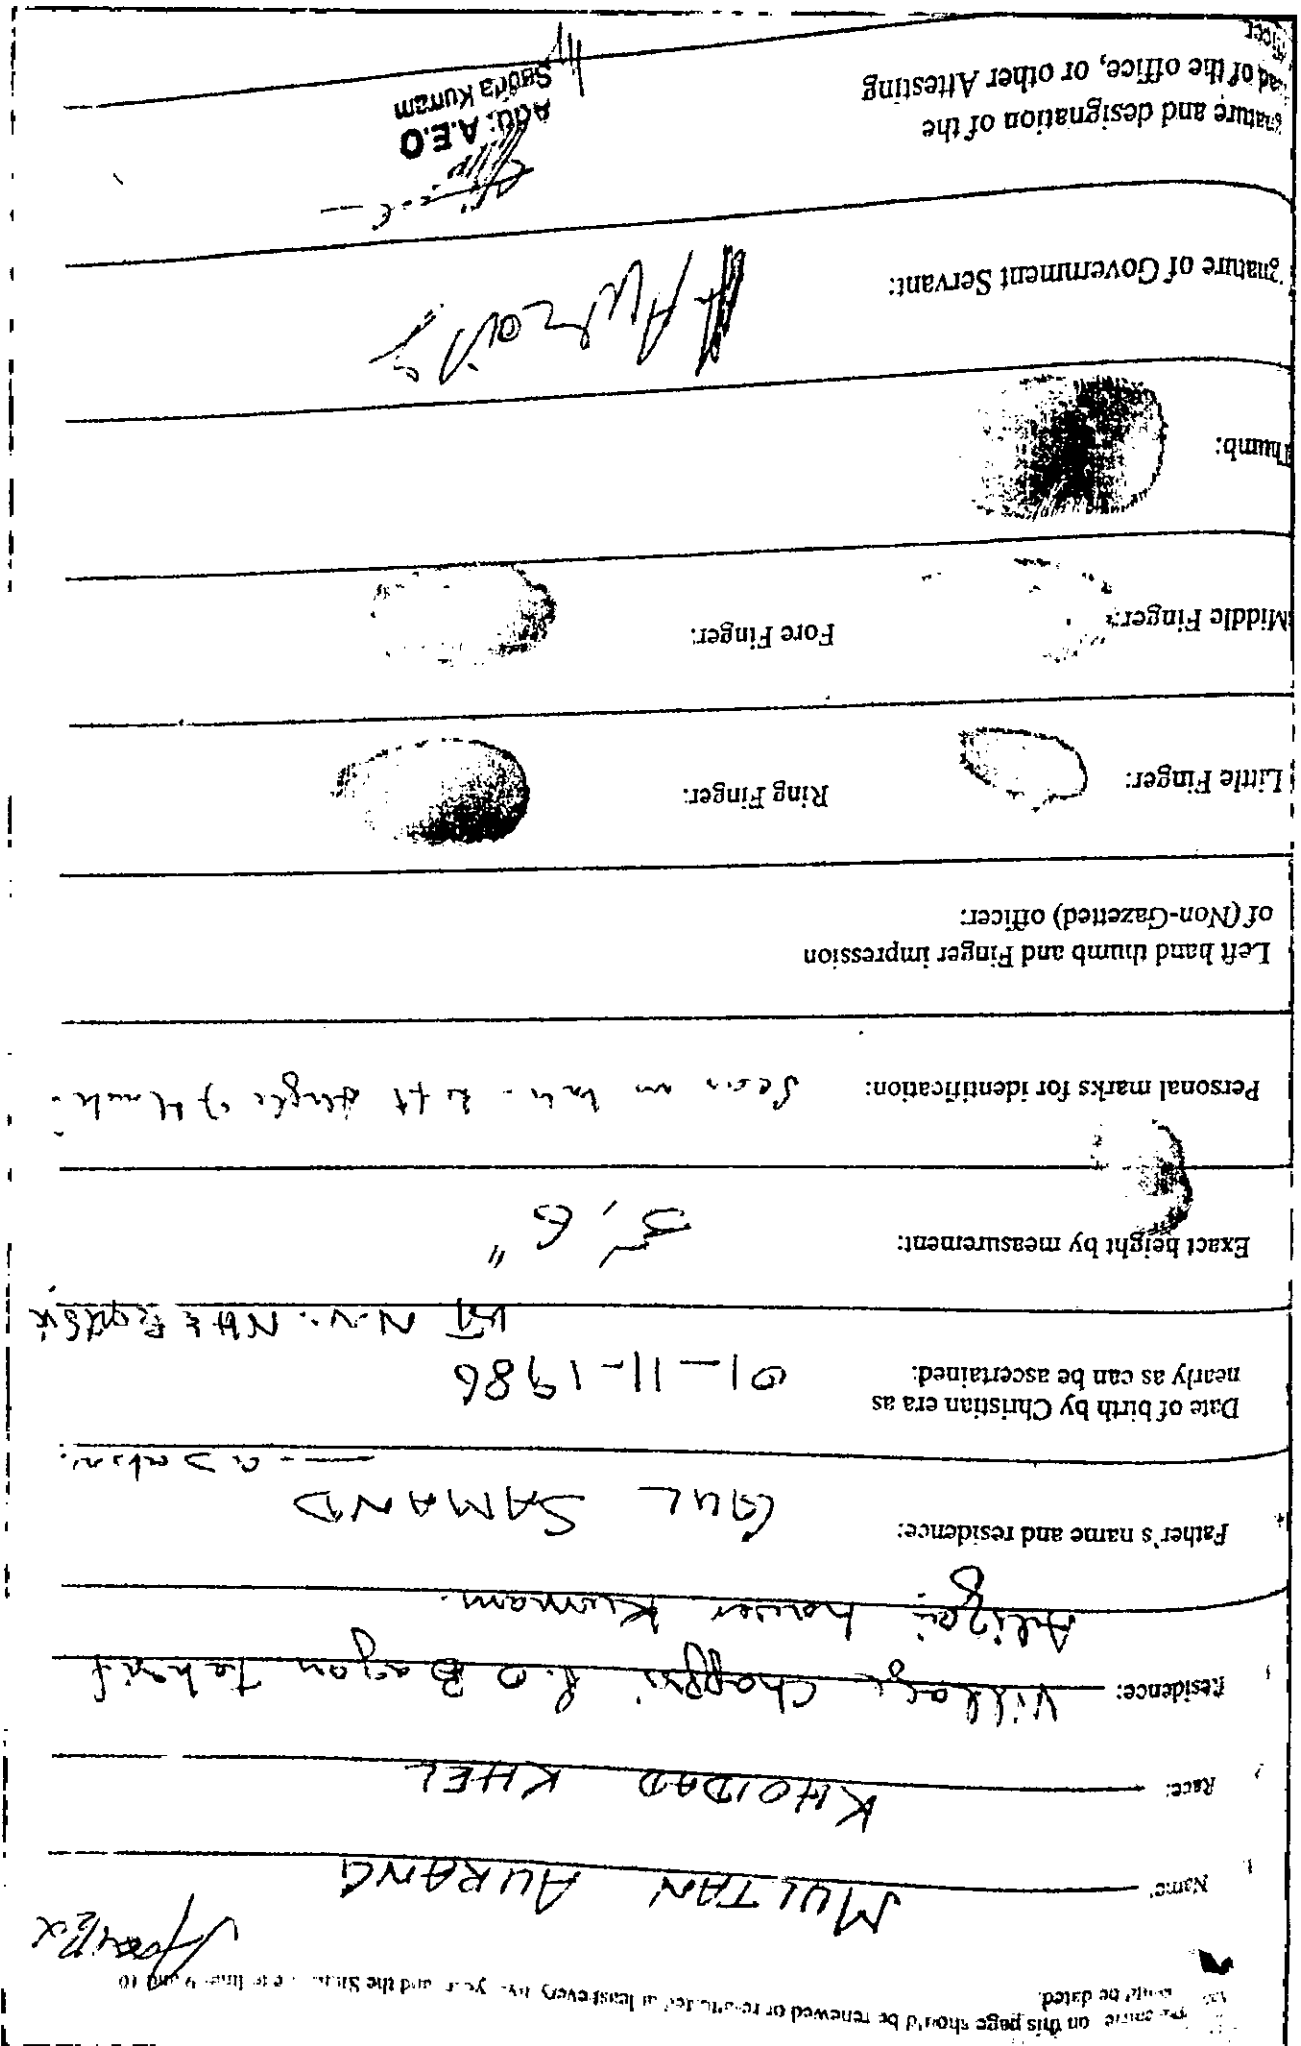 on this page should be renewed or re-attested at least every five years and the
should be dated.
Name: MULTAN AURANG
Race: KHOIDAD KHEL
Residence: Village Chappri P.O Bagan Tehsil
Alizai Lower Kurram.
Father's name and residence: GUL SAMAND
Date of birth by Christian era as
nearly as can be ascertained: 01-11-1986
Exact height by measurement: 5' 6"
Personal marks for identification:
Left hand thumb and Finger impression
of (Non-Gazetted) officer:
Little Finger: Ring Finger:
Middle Finger: Fore Finger:
Thumb:
gnature of Government Servant:
gnature and designation of the
ead of the office, or other Attesting
fficer
Add: A.E.O
Sadda Kurram